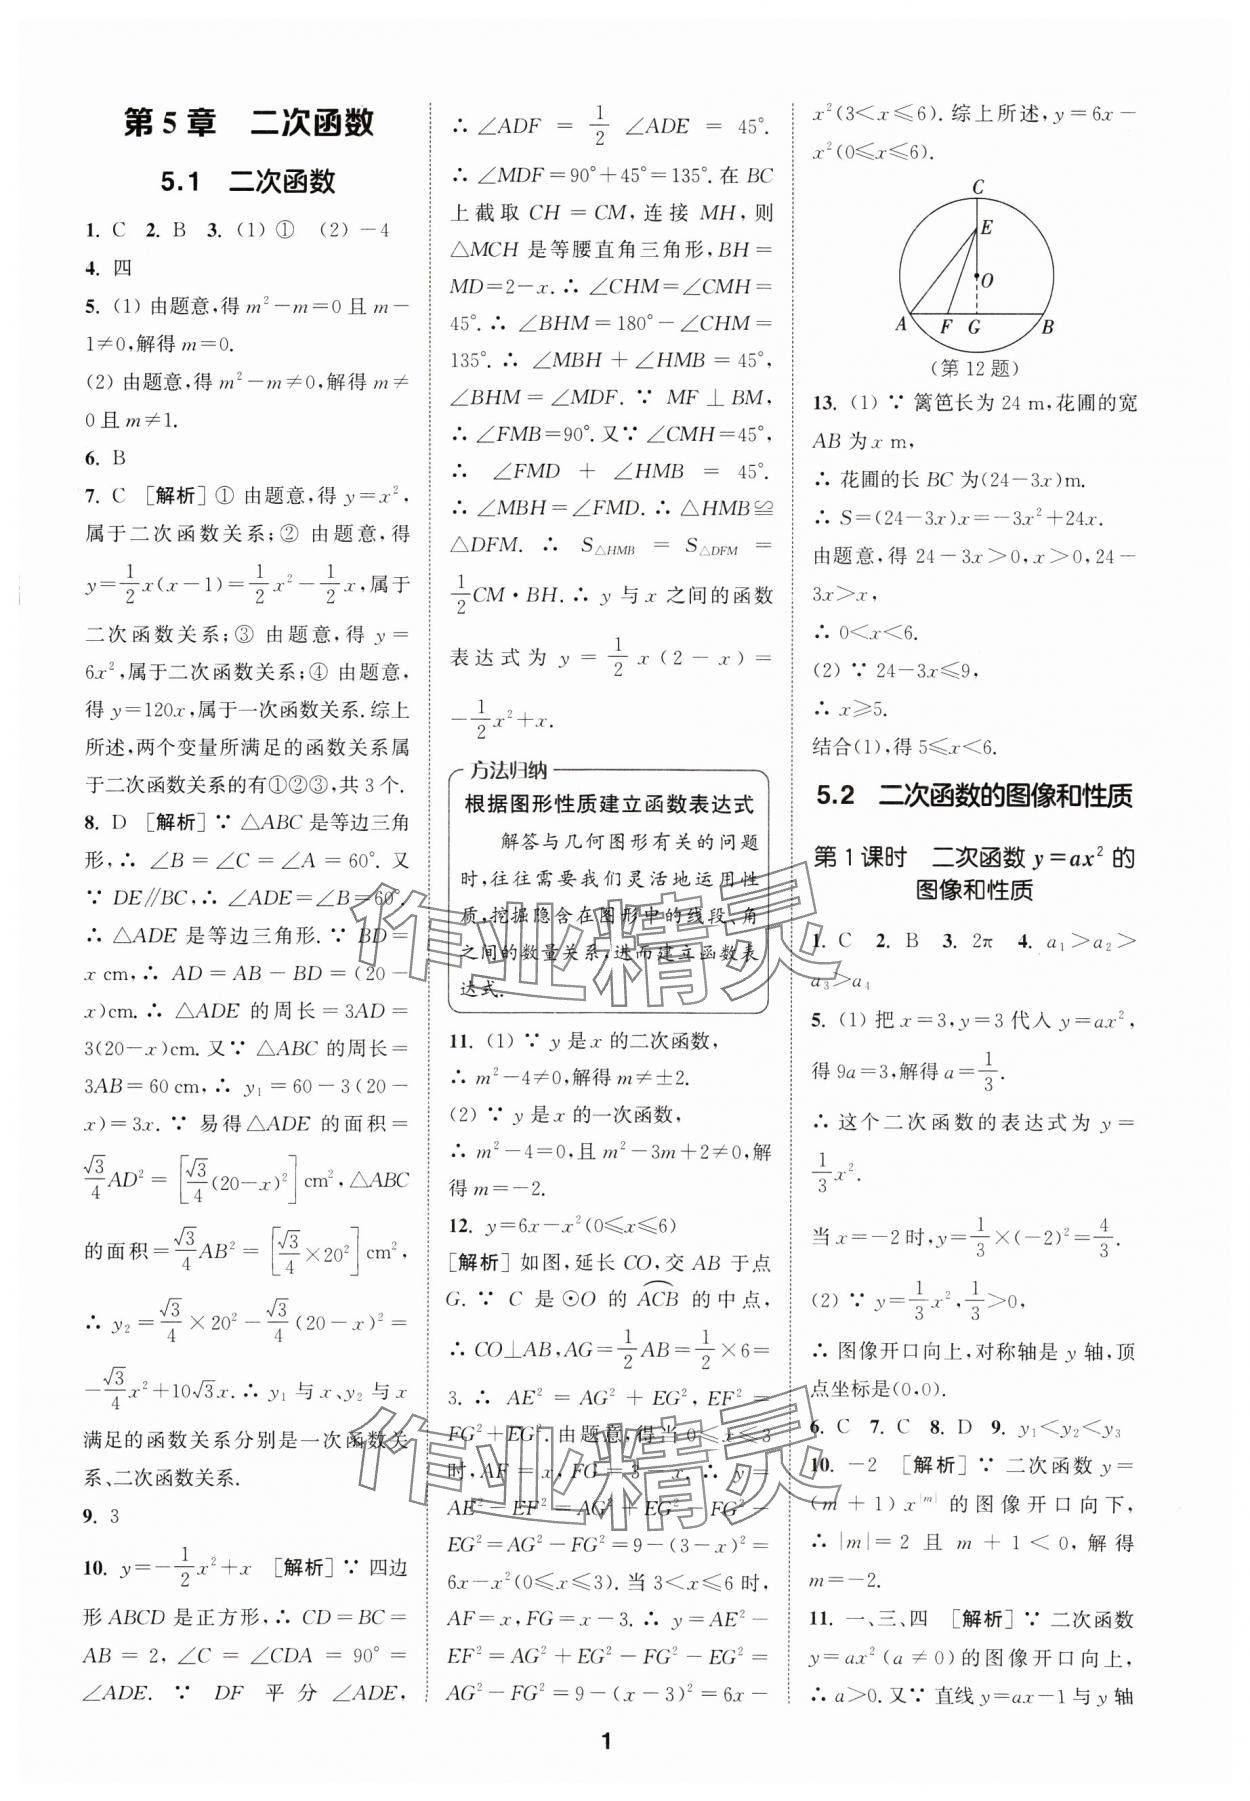 第5章　二次函数
5.1　二次函数
1. C　2. B　3. (1) ①　(2) －4
4. 四
5. (1) 由题意,得 m²－m＝0 且 m－
1≠0,解得 m＝0.
(2) 由题意,得 m²－m≠0,解得 m≠
0 且 m≠1.
6. B
7. C　[解析] ① 由题意,得 y＝x²,
属于二次函数关系;② 由题意,得
y＝1/2 x(x－1)＝1/2 x²－1/2 x,属于
二次函数关系;③ 由题意,得 y＝
6x²,属于二次函数关系;④ 由题意,
得 y＝120x,属于一次函数关系.综上
所述,两个变量所满足的函数关系属
于二次函数关系的有①②③,共 3 个.
8. D　[解析] ∵ △ABC 是等边三角
形,∴ ∠B＝∠C＝∠A＝60°. 又
∵ DE∥BC,∴ ∠ADE＝∠B＝60°.
∴ △ADE 是等边三角形.∵ BD＝
x cm,∴ AD＝AB－BD＝(20－
x)cm.∴ △ADE 的周长＝3AD＝
3(20－x)cm.又∵ △ABC 的周长＝
3AB＝60 cm,∴ y₁＝60－3(20－
x)＝3x.∵ 易得△ADE 的面积＝
√3/4 AD²＝[√3/4 (20－x)²]cm²,△ABC
的面积＝√3/4 AB²＝[√3/4×20²]cm²,
∴ y₂＝√3/4×20²－√3/4(20－x)²＝
－√3/4 x²＋10√3x.∴ y₁ 与 x、y₂ 与 x
满足的函数关系分别是一次函数关
系、二次函数关系.
9. 3
10. y＝－1/2 x²＋x　[解析] ∵ 四边
形 ABCD 是正方形,∴ CD＝BC＝
AB＝2,∠C＝∠CDA＝90°＝
∠ADE. ∵ DF 平分∠ADE,
∴ ∠ADF＝1/2∠ADE＝45°.
∴ ∠MDF＝90°＋45°＝135°. 在 BC
上截取 CH＝CM,连接 MH,则
△MCH 是等腰直角三角形,BH＝
MD＝2－x.∴ ∠CHM＝∠CMH＝
45°.∴ ∠BHM＝180°－∠CHM＝
135°.∴ ∠MBH＋∠HMB＝45°,
∠BHM＝∠MDF. ∵ MF⊥BM,
∴ ∠FMB＝90°.又∵ ∠CMH＝45°,
∴ ∠FMD＋∠HMB＝45°.
∴ ∠MBH＝∠FMD.∴ △HMB≌
△DFM. ∴ S△HMB＝S△DFM＝
1/2 CM·BH.∴ y 与 x 之间的函数
表达式为 y＝1/2 x(2－x)＝
－1/2 x²＋x.
方法归纳
根据图形性质建立函数表达式
解答与几何图形有关的问题
时,往往需要我们灵活地运用性
质,挖掘隐含在图形中的线段、角
之间的数量关系,进而建立函数表
达式.
11. (1) ∵ y 是 x 的二次函数,
∴ m²－4≠0,解得 m≠±2.
(2) ∵ y 是 x 的一次函数,
∴ m²－4＝0,且 m²－3m＋2≠0,解
得 m＝－2.
12. y＝6x－x²(0≤x≤6)
[解析] 如图,延长 CO,交 AB 于点
G.∵ C 是⊙O 的 A͡CB 的中点,
∴ CO⊥AB,AG＝1/2 AB＝1/2×6＝
3.∴ AE²＝AG²＋EG²,EF²＝
FG²＋EG².由题意,得当 0≤x≤3
时,AF＝x,FG＝3－x.∴ y＝
AE²－EF²＝AG²＋EG²－FG²－
EG²＝AG²－FG²＝9－(3－x)²＝
6x－x²(0≤x≤3).当 3<x≤6 时,
AF＝x,FG＝x－3.∴ y＝AE²－
EF²＝AG²＋EG²－FG²－EG²＝
AG²－FG²＝9－(x－3)²＝6x－
x²(3<x≤6).综上所述,y＝6x－
x²(0≤x≤6).
C
E
O
A F G B
(第12题)
13. (1) ∵ 篱笆长为 24 m,花圃的宽
AB 为 x m,
∴ 花圃的长 BC 为(24－3x)m.
∴ S＝(24－3x)x＝－3x²＋24x.
由题意,得 24－3x>0,x>0,24－
3x>x,
∴ 0<x<6.
(2) ∵ 24－3x≤9,
∴ x≥5.
结合(1),得 5≤x<6.
5.2　二次函数的图像和性质
第1课时　二次函数 y＝ax² 的
图像和性质
1. C　2. B　3. 2π　4. a₁>a₂>
a₃>a₄
5. (1) 把 x＝3,y＝3 代入 y＝ax²,
得 9a＝3,解得 a＝1/3.
∴ 这个二次函数的表达式为 y＝
1/3 x².
当 x＝－2 时,y＝1/3×(－2)²＝4/3.
(2) ∵ y＝1/3 x²,1/3>0,
∴ 图像开口向上,对称轴是 y 轴,顶
点坐标是(0,0).
6. C　7. C　8. D　9. y₁<y₂<y₃
10. －2　[解析] ∵ 二次函数 y＝
(m＋1)x^|m| 的图像开口向下,
∴ |m|＝2 且 m＋1<0,解得
m＝－2.
11. 一、三、四　[解析] ∵ 二次函数
y＝ax²(a≠0)的图像开口向上,
∴ a>0.又∵ 直线 y＝ax－1 与 y 轴
1
作业精灵
作业精灵